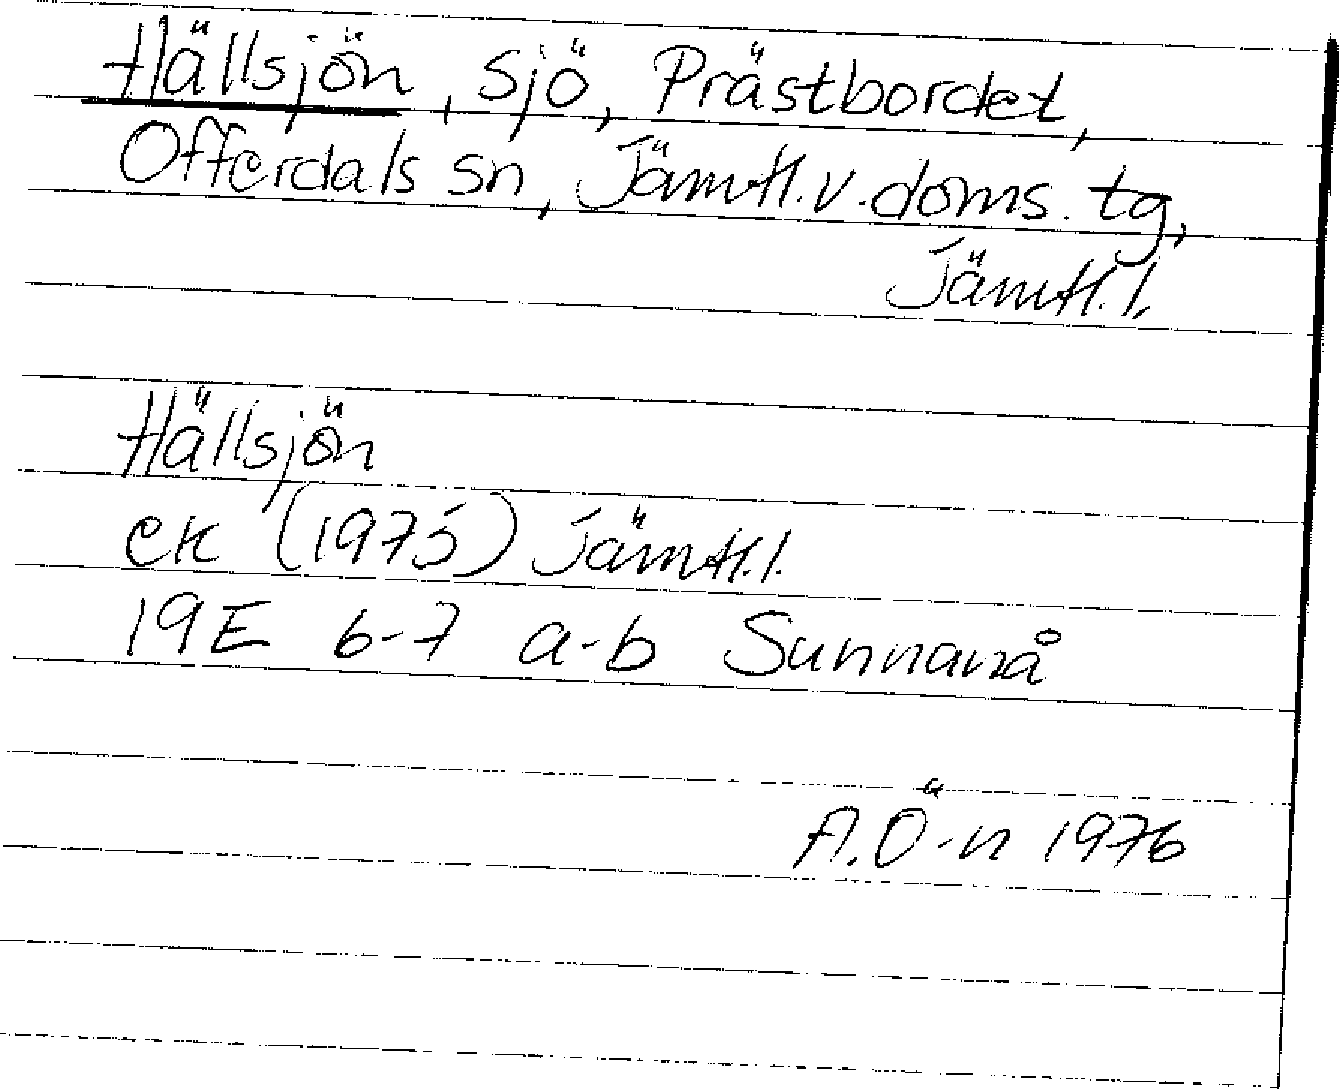 Hällsjön, sjö, Prästbordet,
Offerdals sn, Jämtl. v. doms. tg,
Jämtl. l.
Hällsjön
ek (1975) Jämtl. l.
19E 6-7 a-b Sunnanå
A. Ö-n 1976